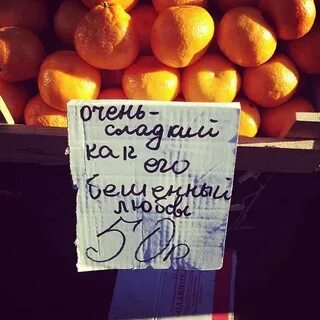 очень-
сладкий
как
его
бешенный
любовь
50р